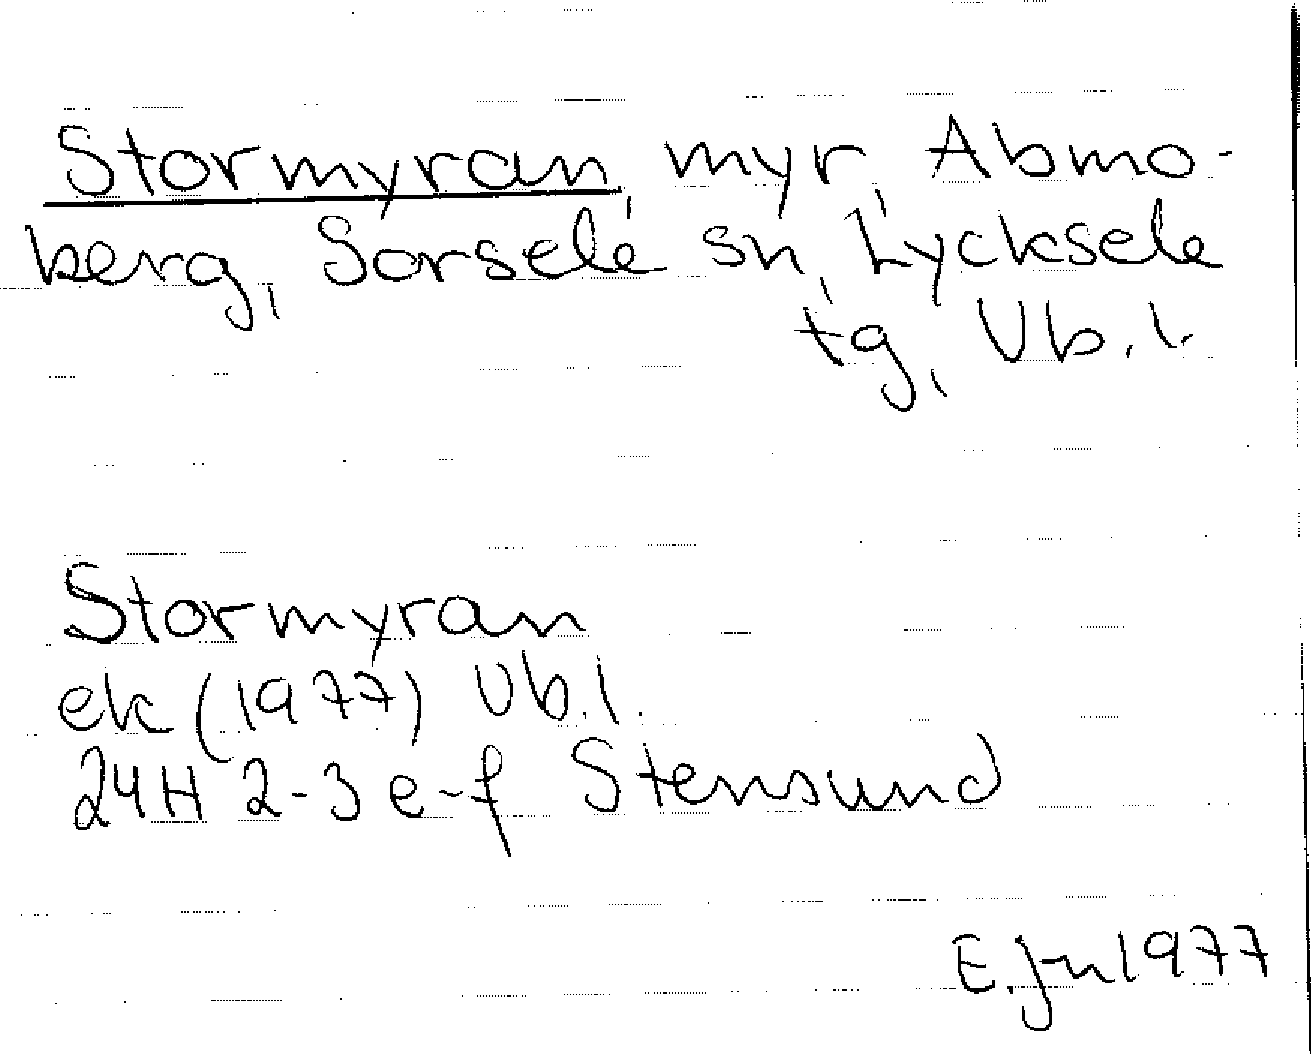 Stormyran, myr, Abmo-
berg, Sorsele sn, Lycksele
tg, Vb. l.
Stormyran
ek (1977) Vb. l.
24H 2-3 e-f Stensund
E. Jn 1977